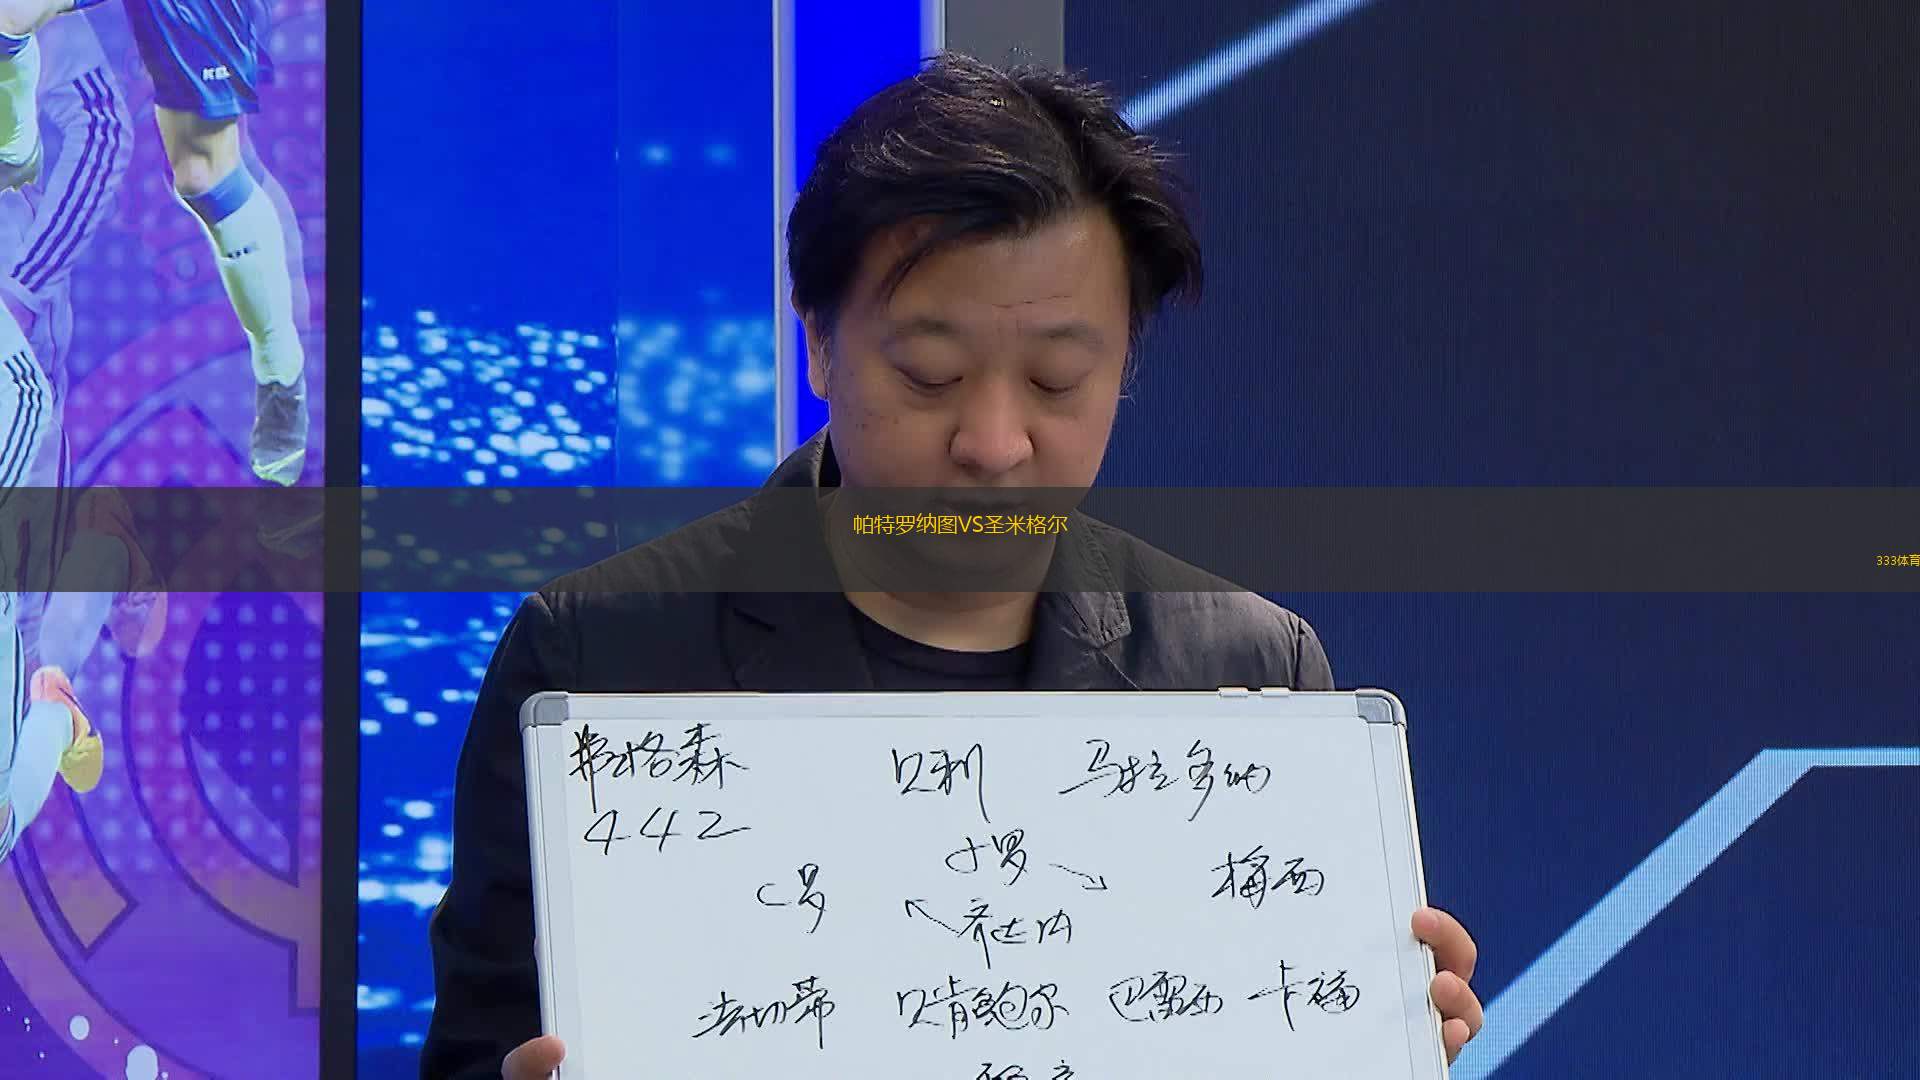 帕特罗纳图VS圣米格尔
333体育
弗格森 贝利 马拉多纳
442
小罗
C罗 梅西
齐达内
法切蒂 贝肯鲍尔 巴雷西 卡福